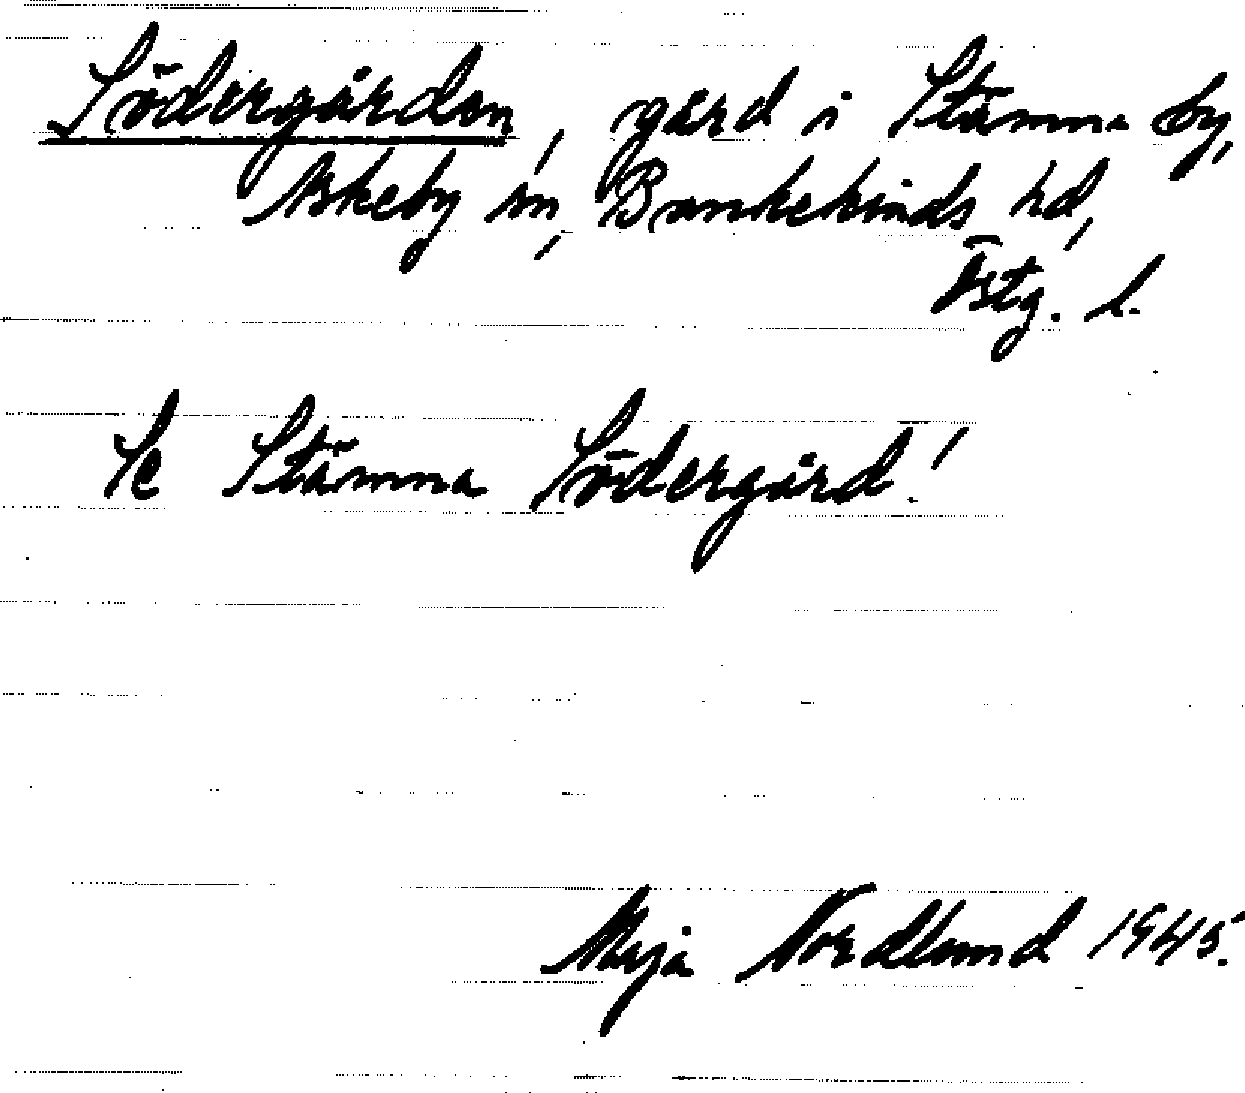 Södergården, gård i Stämma by,
Askeby sn, Bankekinds hd,
Östg. l.
Se Stämma Södergård!
Maja Nordlund 1945.